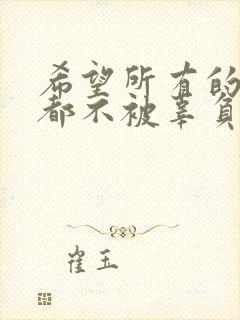 希望所有的
都不被辜负
崔玉